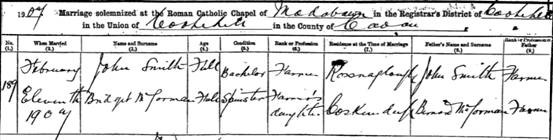 1907 Marriage solemnized at the Roman Catholic Chapel of in the Registrar's District of Cootehill
in the Union of Cootehill in the County of Cavan
No. When Married Name and Surname Age Condition Rank or Profession Residence at the Time of Marriage Father's Name and Surname Rank or Profession of Father
(1.) (2.) (3.) (4.) (5.) (6.) (7.) (8.) (9.)
189 February John Smith Full Bachelor Farmer John Smith Farmer
Eleventh Bridget McGorman Full Spinster Farmer's Bernard McGorman Farmer
1907 daughter